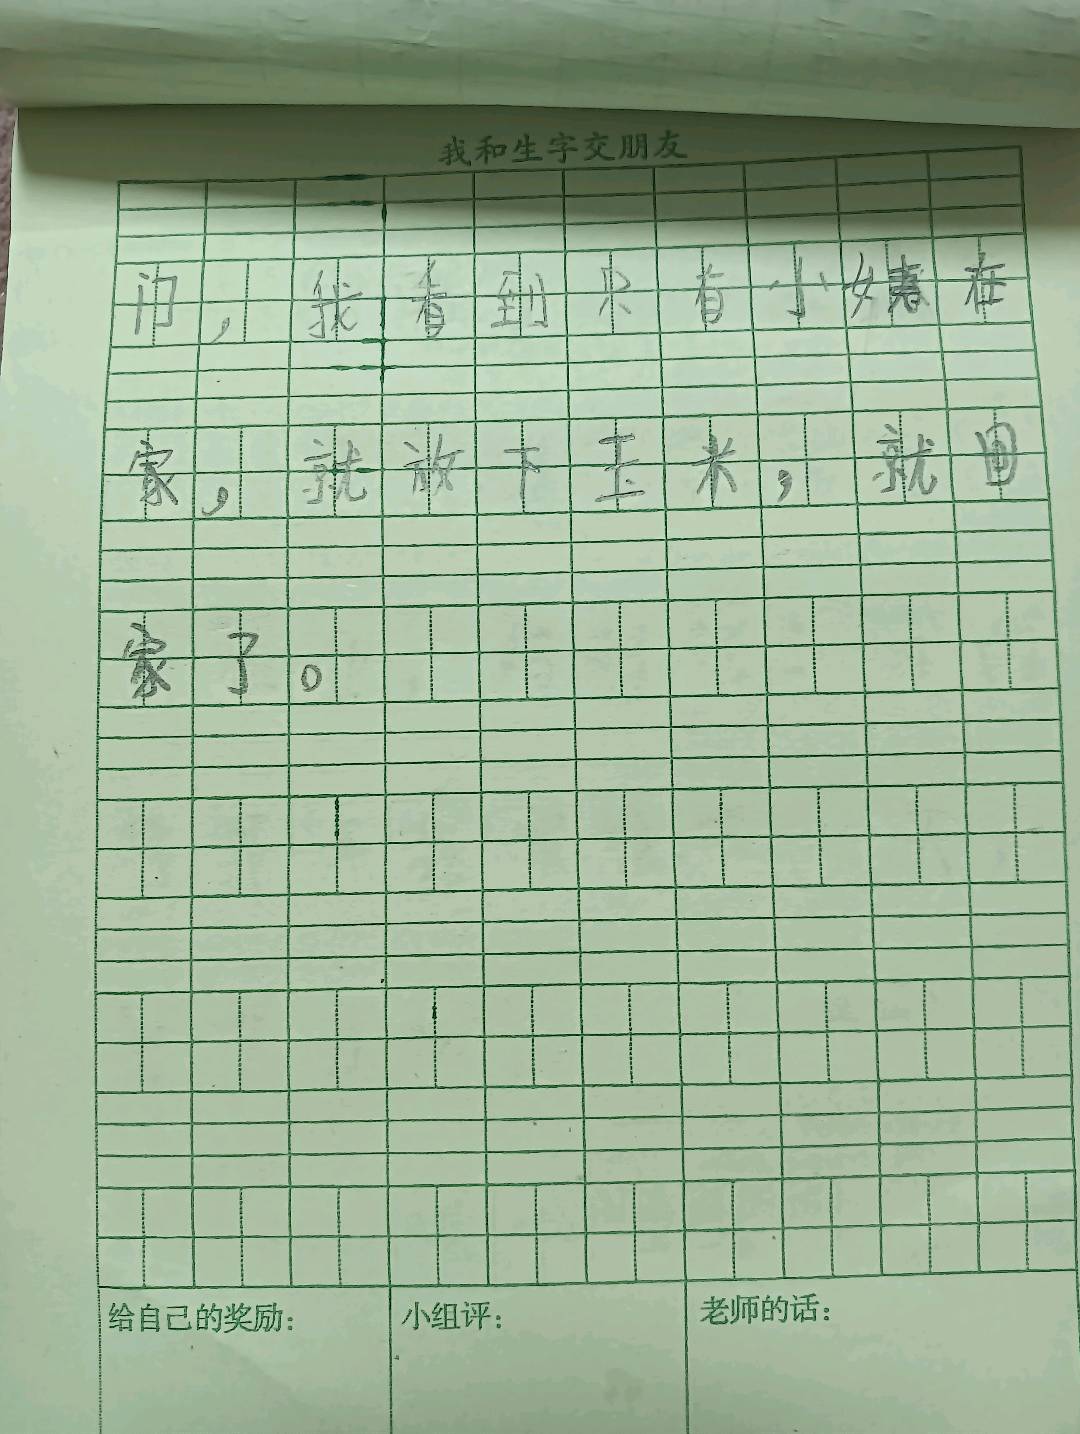 我和生字交朋友
门，我看到只有小婊在
家，就放下玉米，就回
家了。
给自己的奖励：
小组评：
老师的话：